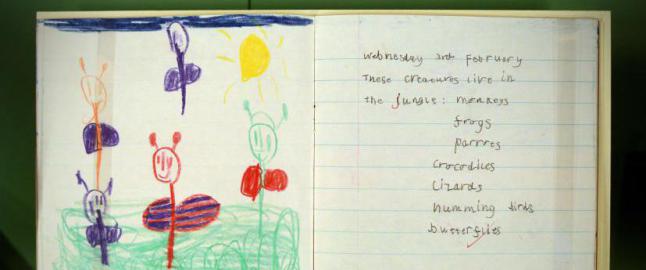 Wednesday 3rd February
These creatures live in
the jungle: monkeys
frogs
parrots
crocodiles
lizards
humming birds
butterflies